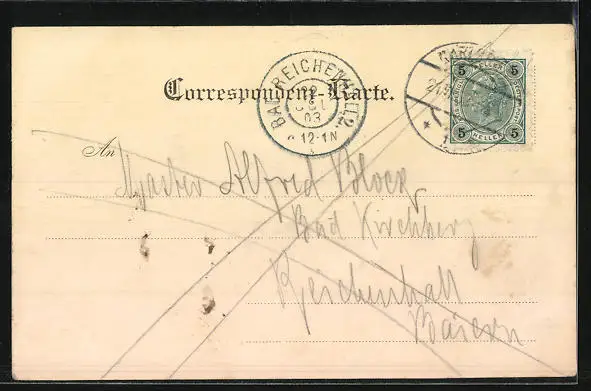 Correspondenz-Karte.
BAD REICHENHALL 2
JUL
03
12-1N
5 HELLER 5
5 HELLER 5
An
Master Alfred Block
Bad Kirchberg
Reichenhall
Baiern